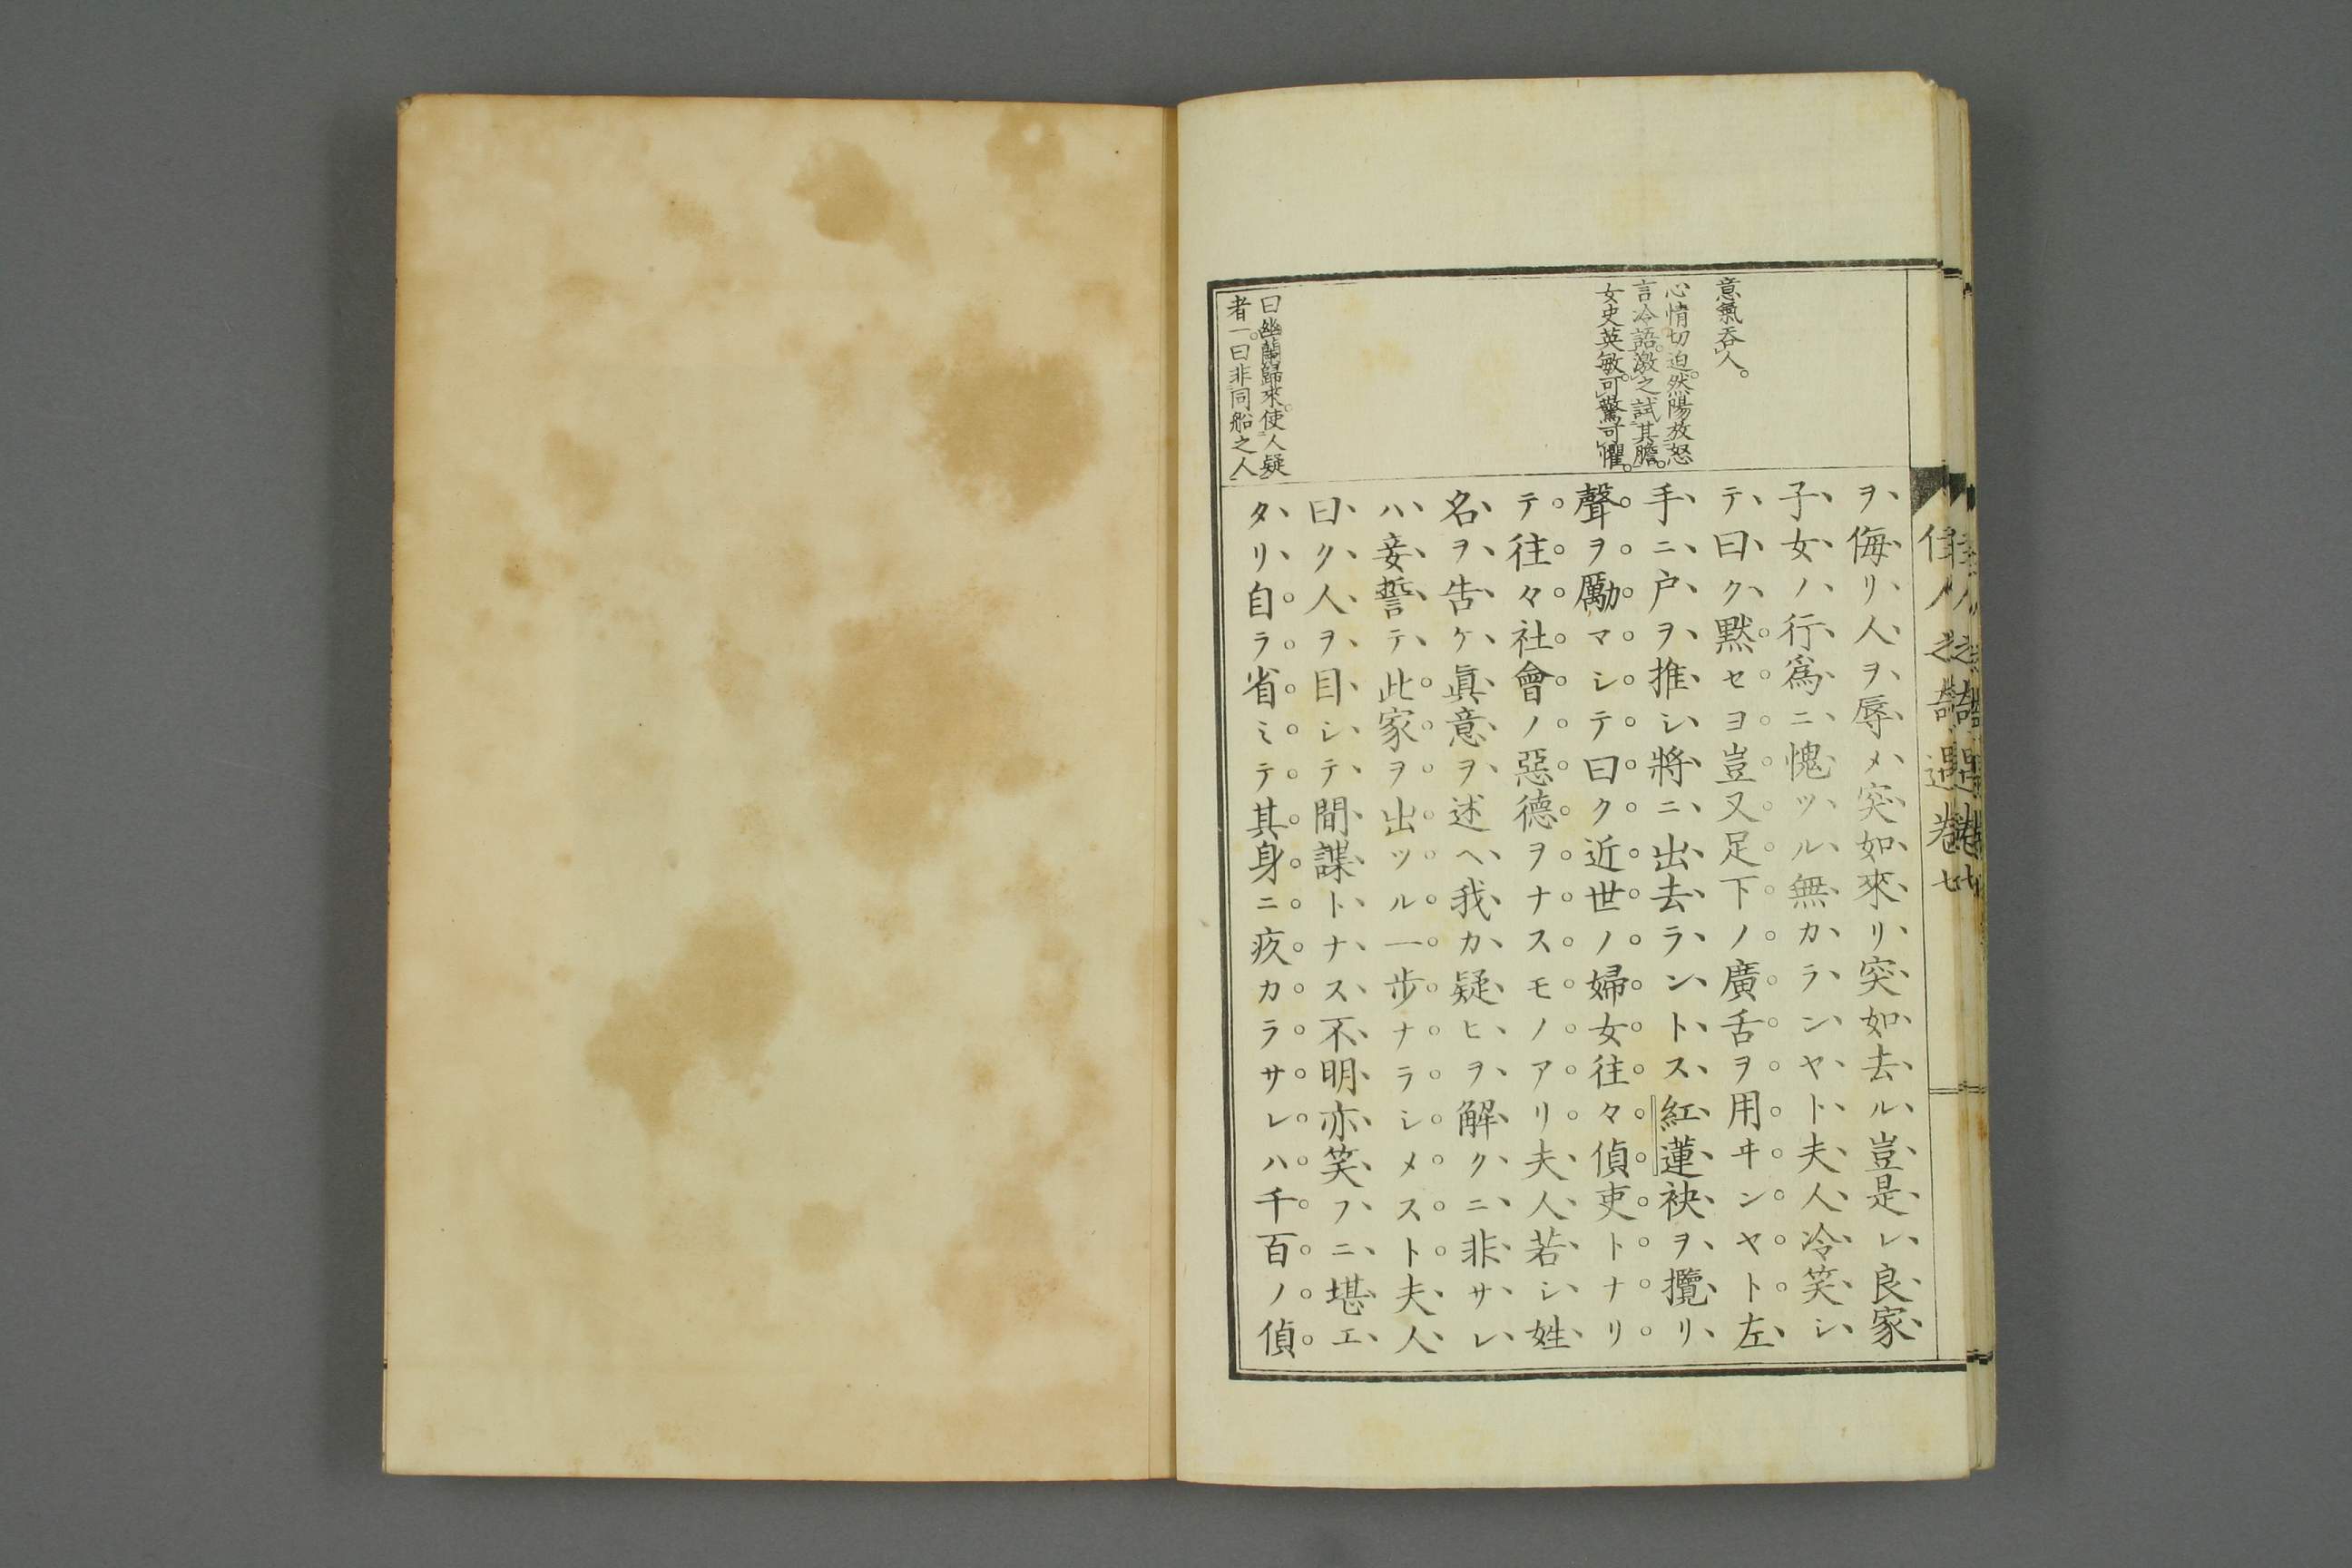 佳人之奇遇卷七
意氣吞人。
心情切迫。然陽放怒
言冷語。激之試其膽。
女史英敏。可驚可懼。
曰幽蘭歸來。使人疑
者一。曰非同船之人
ヲ侮リ人ヲ辱メ突如來リ突如去ル豈是レ良家
子女ノ行爲ニ愧ツル無カランヤト夫人冷笑シ
テ曰ク默セヨ豈又足下ノ廣舌ヲ用ヰンヤト左
手ニ戸ヲ推シ將ニ出去ラントス紅蓮袂ヲ攬リ
聲ヲ勵マシテ曰ク近世ノ婦女往々偵吏トナリ
テ往々社會ノ惡德ヲナスモノアリ夫人若シ姓
名ヲ告ケ眞意ヲ述ヘ我カ疑ヒヲ解クニ非サレ
ハ妾誓テ此家ヲ出ツル一步ナラシメスト夫人
曰ク人ヲ目シテ間諜トナス不明亦笑フニ堪エ
タリ自ラ省ミテ其身ニ疚カラサレハ千百ノ偵